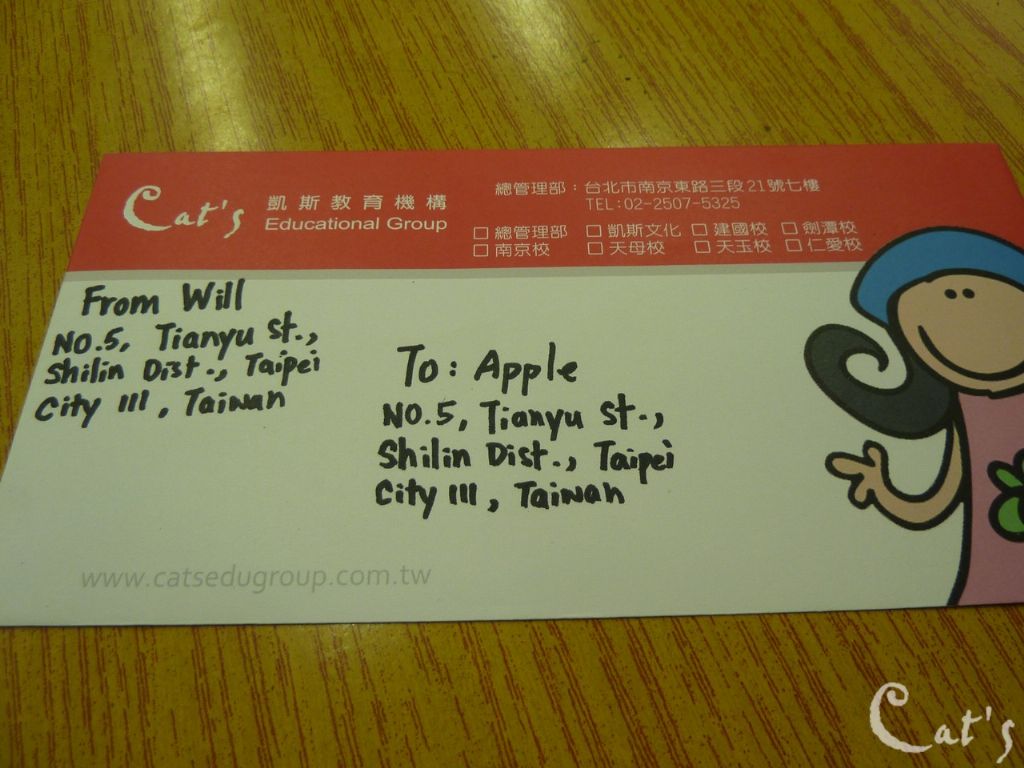 Cat's 凱斯教育機構
Educational Group
總管理部：台北市南京東路三段21號七樓
TEL:02-2507-5325
□ 總管理部 □ 凱斯文化 □ 建國校 □ 劍潭校
□ 南京校 □ 天母校 □ 天玉校 □ 仁愛校
From Will
No.5, Tianyu St.,
Shilin Dist., Taipei
City 111, Taiwan
To: Apple
No.5, Tianyu St.,
Shilin Dist., Taipei
City 111, Taiwan
www.catsedugroup.com.tw
Cat's